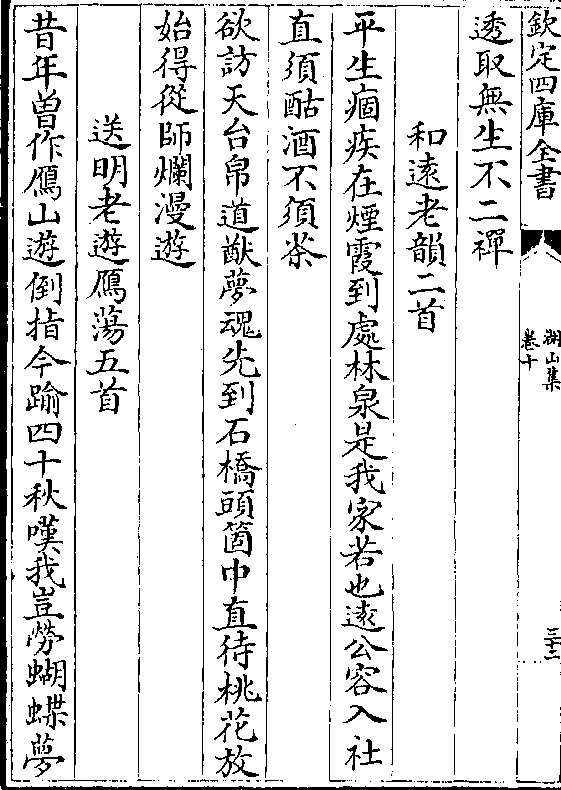 欽定四庫全書
湖山集
卷十
三十二
透取無生不二禪
和遠老韻二首
平生痼疾在煙霞到處林泉是我家若也遠公容入社
直須酤酒不須茶
欲訪天台帛道猷夢魂先到石橋頭箇中直待桃花放
始得從師爛漫遊
送明老遊鴈蕩五首
昔年曽作鴈山遊倒指今踰四十秋嘆我豈勞蝴蝶夢